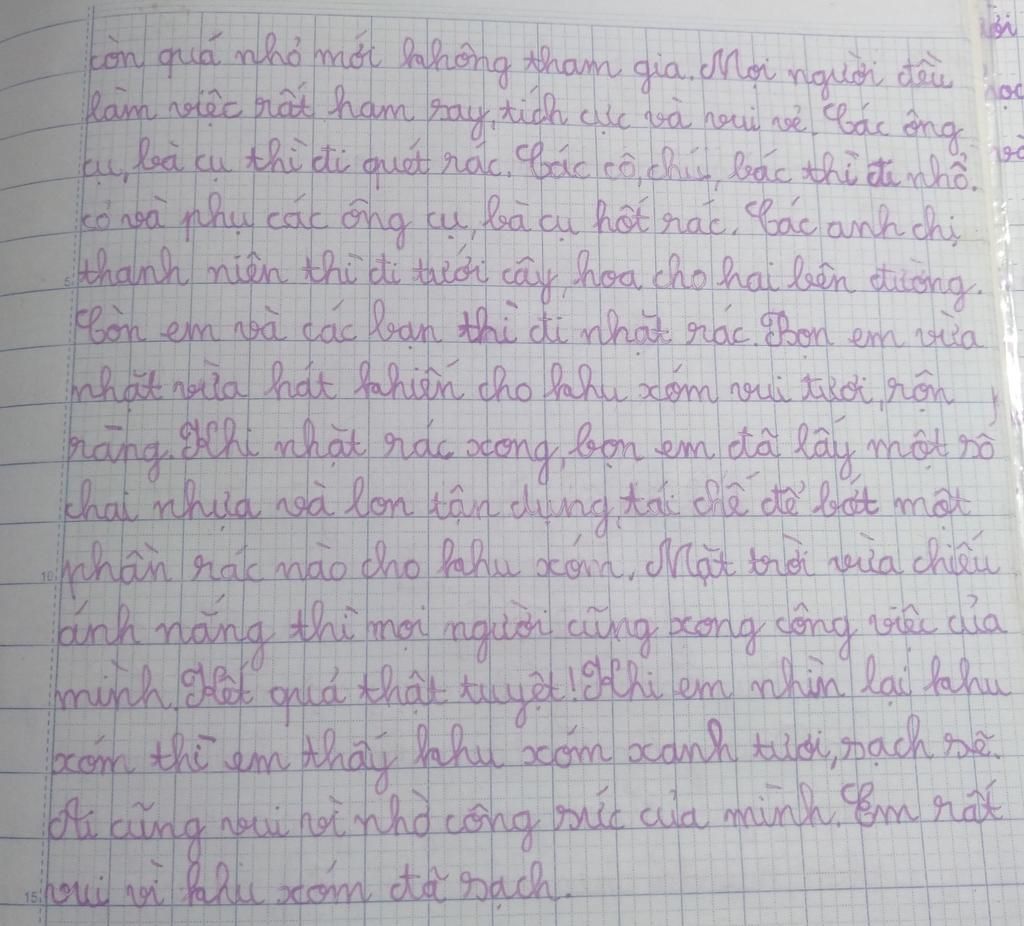 còn quá nhỏ mới không tham gia. Mọi người đều
làm việc rất ham say, tích cực và vui vẻ. Các ông
cụ, bà cụ thì đi quét rác. Các cô, chú, bác thì đi nhổ
cỏ và phụ các ông cụ, bà cụ hốt rác. Các anh chị
thanh niên thì đi tưới cây, hoa cho hai bên đường.
Còn em và các bạn thì đi nhặt rác. Bọn em vừa
nhặt vừa hát khiến cho khu xóm vui tươi, rộn
ràng. Khi nhặt rác xong, bọn em đã lấy một số
chai nhựa và lon tận dụng, tái chế để bớt một
phần rác nào cho khu xóm. Mặt trời vừa chiếu
ánh nắng thì mọi người cũng xong công việc của
mình. Kết quả thật tuyệt! Khi em nhìn lại khu
xóm thì em thấy khu xóm xanh tươi, sạch sẽ.
Ai cũng vui vì nhờ công sức của mình. Em rất
vui vì khu xóm đã sạch.